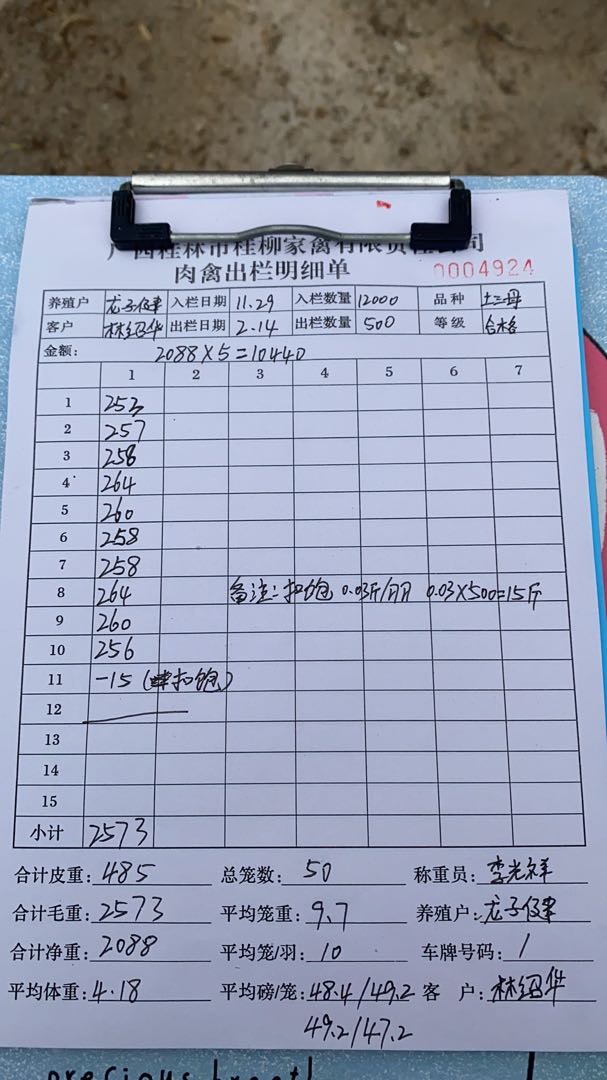 广西桂林市桂柳家禽有限责任公司
肉禽出栏明细单 0004924
养殖户 龙子健 入栏日期 11.29 入栏数量 12000 品种 土三母
客户 林绍华 出栏日期 2.14 出栏数量 500 等级 合格
金额: 2088×5=10440
1 2 3 4 5 6 7
1 253
2 257
3 258
4 264
5 260
6 258
7 258
8 264 备注:扣饱 0.03斤/羽 0.03×500=15斤
9 260
10 256
11 -15 (扣饱)
12
13
14
15
小计 2573
合计皮重: 485 总笼数: 50 称重员: 李光祥
合计毛重: 2573 平均笼重: 9.7 养殖户: 龙子健
合计净重: 2088 平均笼/羽: 10 车牌号码: /
平均体重: 4.18 平均磅/笼: 48.4/49.2 客 户: 林绍华
49.2/47.2